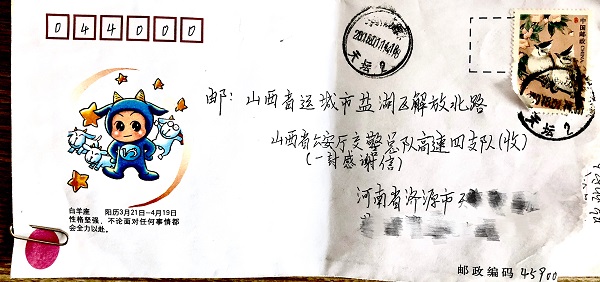 044000
中国邮政
CHINA
天坛
邮：山西省运城市盐湖区解放北路
山西省公安厅交警总队高速四支队(收)
(一封感谢信)
河南省济源市
白羊座 阳历3月21日—4月19日
性格坚强，不论面对任何事情都
会全力以赴。
邮政编码 45900